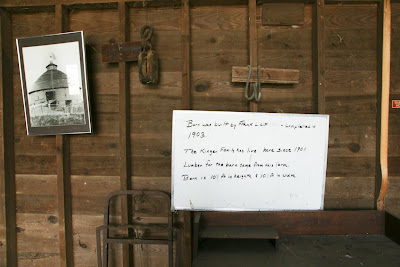 Barn was built by Frank Litt - completed in
1903.
The Ringer Family has live here since 1901
Lumber for the barn came from this farm.
Barn is 101 ft in height & 101 ft in width